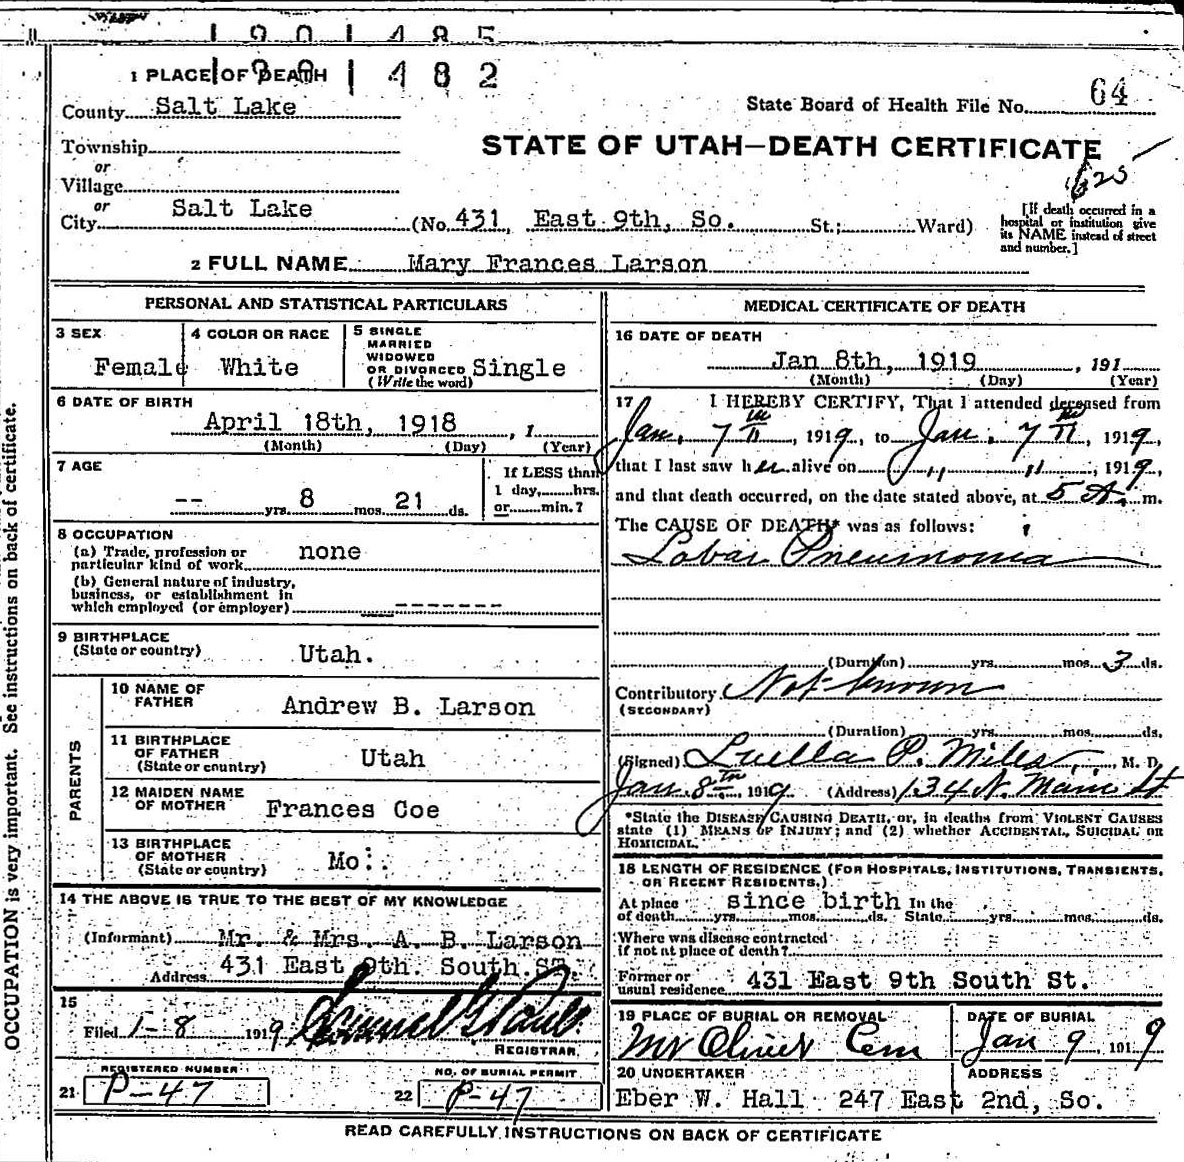 1901485
1901482
1 PLACE OF DEATH
County Salt Lake
State Board of Health File No. 64
Township
or
Village
or
City Salt Lake
STATE OF UTAH—DEATH CERTIFICATE
(No. 431, East 9th, So. St.; Ward)
[If death occurred in a
hospital or institution give
its NAME instead of street
and number.]
2 FULL NAME Mary Frances Larson
PERSONAL AND STATISTICAL PARTICULARS
3 SEX
Female
4 COLOR OR RACE
White
5 SINGLE
MARRIED
WIDOWED
OR DIVORCED Single
(Write the word)
6 DATE OF BIRTH
April 18th, 1918, 1
(Month) (Day) (Year)
7 AGE
-- yrs. 8 mos. 21 ds.
If LESS than
1 day, hrs.
or min.?
8 OCCUPATION
(a) Trade, profession or
particular kind of work none
(b) General nature of industry,
business, or establishment in
which employed (or employer) -------
9 BIRTHPLACE
(State or country) Utah.
PARENTS
10 NAME OF
FATHER Andrew B. Larson
11 BIRTHPLACE
OF FATHER
(State or country) Utah
12 MAIDEN NAME
OF MOTHER Frances Coe
13 BIRTHPLACE
OF MOTHER
(State or country) Mo.
14 THE ABOVE IS TRUE TO THE BEST OF MY KNOWLEDGE
(Informant) Mr. & Mrs. A. B. Larson
Address 431 East 9th. South St.
15
Filed 1-8 1919
REGISTRAR
REGISTERED NUMBER
21 P-47
NO. OF BURIAL PERMIT
22 P-47
MEDICAL CERTIFICATE OF DEATH
16 DATE OF DEATH
Jan 8th, 1919, 191
(Month) (Day) (Year)
17 I HEREBY CERTIFY, That I attended deceased from
Jan. 7th, 1919, to Jan. 7th, 1919,
that I last saw her alive on " ", 1919,
and that death occurred, on the date stated above, at 5 A. m.
The CAUSE OF DEATH* was as follows:
Lobar Pneumonia
(Duration) yrs. mos. 3 ds.
Contributory Not known
(SECONDARY)
(Duration) yrs. mos. ds.
(Signed) Luella P. Miles, M. D.
Jan. 8th, 1919 (Address) 134 N. Main St
*State the DISEASE CAUSING DEATH, or, in deaths from VIOLENT CAUSES
state (1) MEANS OF INJURY; and (2) whether ACCIDENTAL, SUICIDAL or
HOMICIDAL.
18 LENGTH OF RESIDENCE (FOR HOSPITALS, INSTITUTIONS, TRANSIENTS,
OR RECENT RESIDENTS.)
At place since birth In the
of death yrs. mos. ds. State yrs. mos. ds.
Where was disease contracted
if not at place of death?
Former or
usual residence 431 East 9th South St.
19 PLACE OF BURIAL OR REMOVAL
Mt Oliver Cem
DATE OF BURIAL
Jan 9, 1919
20 UNDERTAKER
Eber W. Hall
ADDRESS
247 East 2nd, So.
READ CAREFULLY INSTRUCTIONS ON BACK OF CERTIFICATE
OCCUPATION is very important. See instructions on back of certificate.